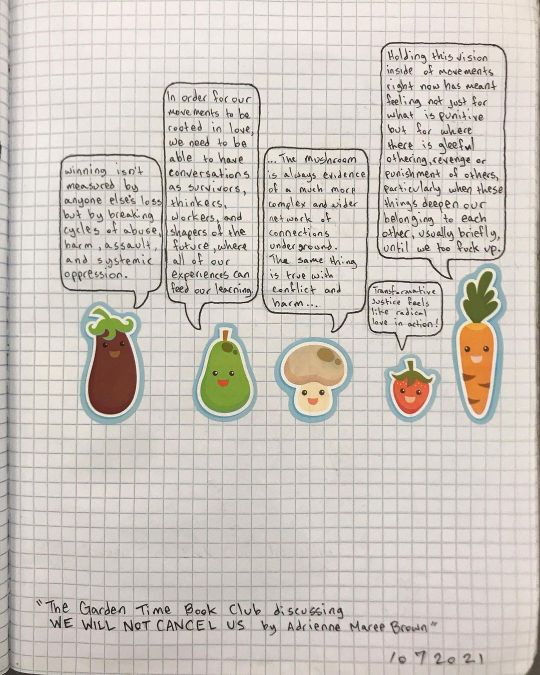 winning isn't
measured by
anyone else's loss
but by breaking
cycles of abuse,
harm, assault,
and systemic
oppression.
In order for our
movements to be
rooted in love,
we need to be
able to have
conversations
as survivors,
thinkers,
workers, and
shapers of the
future, where
all of our
experiences can
feed our learning
...The mushroom
is always evidence
of a much more
complex and wider
network of
connections
underground.
The same thing
is true with
conflict and
harm...
Transformative
Justice feels
like radical
love in action!
Holding this vision
inside of movements
right now has meant
feeling not just for
what is punitive
but for where
there is gleeful
othering, revenge or
punishment of others,
particularly when these
things deepen our
belonging to each
other, usually briefly,
until we too fuck up.
"The Garden Time Book Club discussing
WE WILL NOT CANCEL US by Adrienne Maree Brown"
10 7 2021